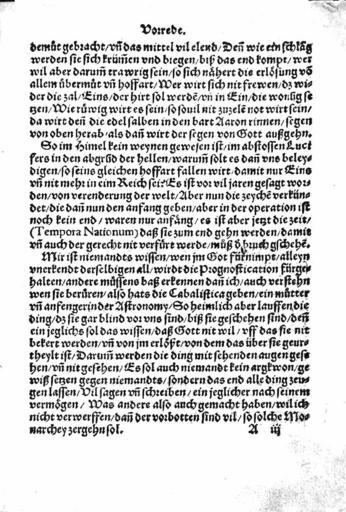 Vorrede.
demüt gebracht/vñ das mittel vil elend/Deñ wie ein schläg
werden sie sich krümen vnd biegen/biß das end kompt/wer
wil aber darum̃ trawrig sein/so sich nähert die erlösung võ
allem übermüt vñ hoffart/Wer wirt sich nit frewen/dz wi-
der die zal/Eins/der hirt sol werdē/vñ in Ein/die wonũg se
tzen/Wie rüwig wirt es sein/so souil nit zuzelē not wirt sein/
da wirt deñ die edel salben in den bart Aaron rinnen/segen
von oben herab/als dañ wirt der segen von Gott außgehn.
So im Himel kein weynen gewesen ist/im abstossen Luci
fers in den abgrũd der hellen/warum̃ solt es dañ vns beley-
digen/so seins gleichen hoffart fallen wirt/damit nur Eins
vñ nit mehr in eim Reich sei? Es ist vor vil jaren gesagt wor-
den/von verenderung der welt/Aber nun die zeychē verkün-
det/die dañ nun den anfang geben/aber in der operation ist
noch kein end/waren nur anfäng/es ist aber jetzt die zeit/
(Tempora Nationum) daß sie zum end gehn werden/damit
vñ auch der gerecht nit verfürt werde/müß d̕ bruch gschehē.
Mir ist niemandts wissen/wen jm Got fürnimpt/alleyn
vnerkendt derselbigen all/wirdt die Prognostication fürge-
halten/andere müssens baß erkennen dañ ich/auch verstehn
wen sie berüren/also hats die Cabalistica geben/ein mütter
vñ anfengerin der Astronomy/So heimlich aber lauffen die
ding/dz sie gar blind vor vns sind/biß sie geschehen sind/deñ
ein jeglichs sol das wissen/daß Gott nit wil/vff das sie nit
bekert werden/vñ von jm erlößt/von dem das über sie geur-
theylt ist/Darum̃ werden die ding mit sehenden augen gese
hen/vñ nit gesehen/Es sol auch niemandt kein argkwon/ge
wiß setzen gegen niemandts/sondern das end alle ding zeu-
gen lassen/Vil sagen vñ schreiben/ein jeglicher nach seinem
vermögen/Was andere also auch gemacht haben/wil ich
nicht verwerffen/dañ der vorbotten sind vil/so solche Mo-
narchey zergehn sol. A iij